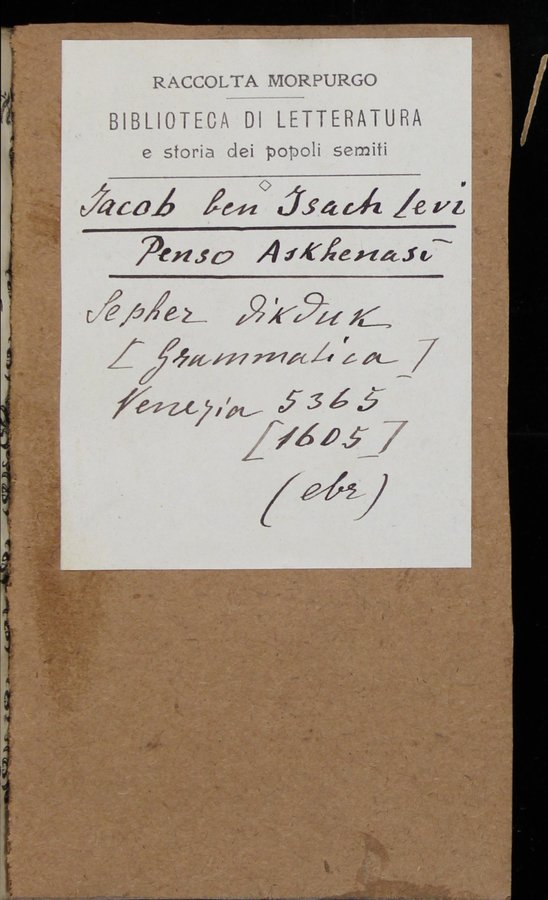 RACCOLTA MORPURGO
BIBLIOTECA DI LETTERATURA
e storia dei popoli semiti
Jacob ben Isach Levi
Penso Askhenasi
Sepher dikduk
[Grammatica]
Venezia 5365
[1605]
(ebr)